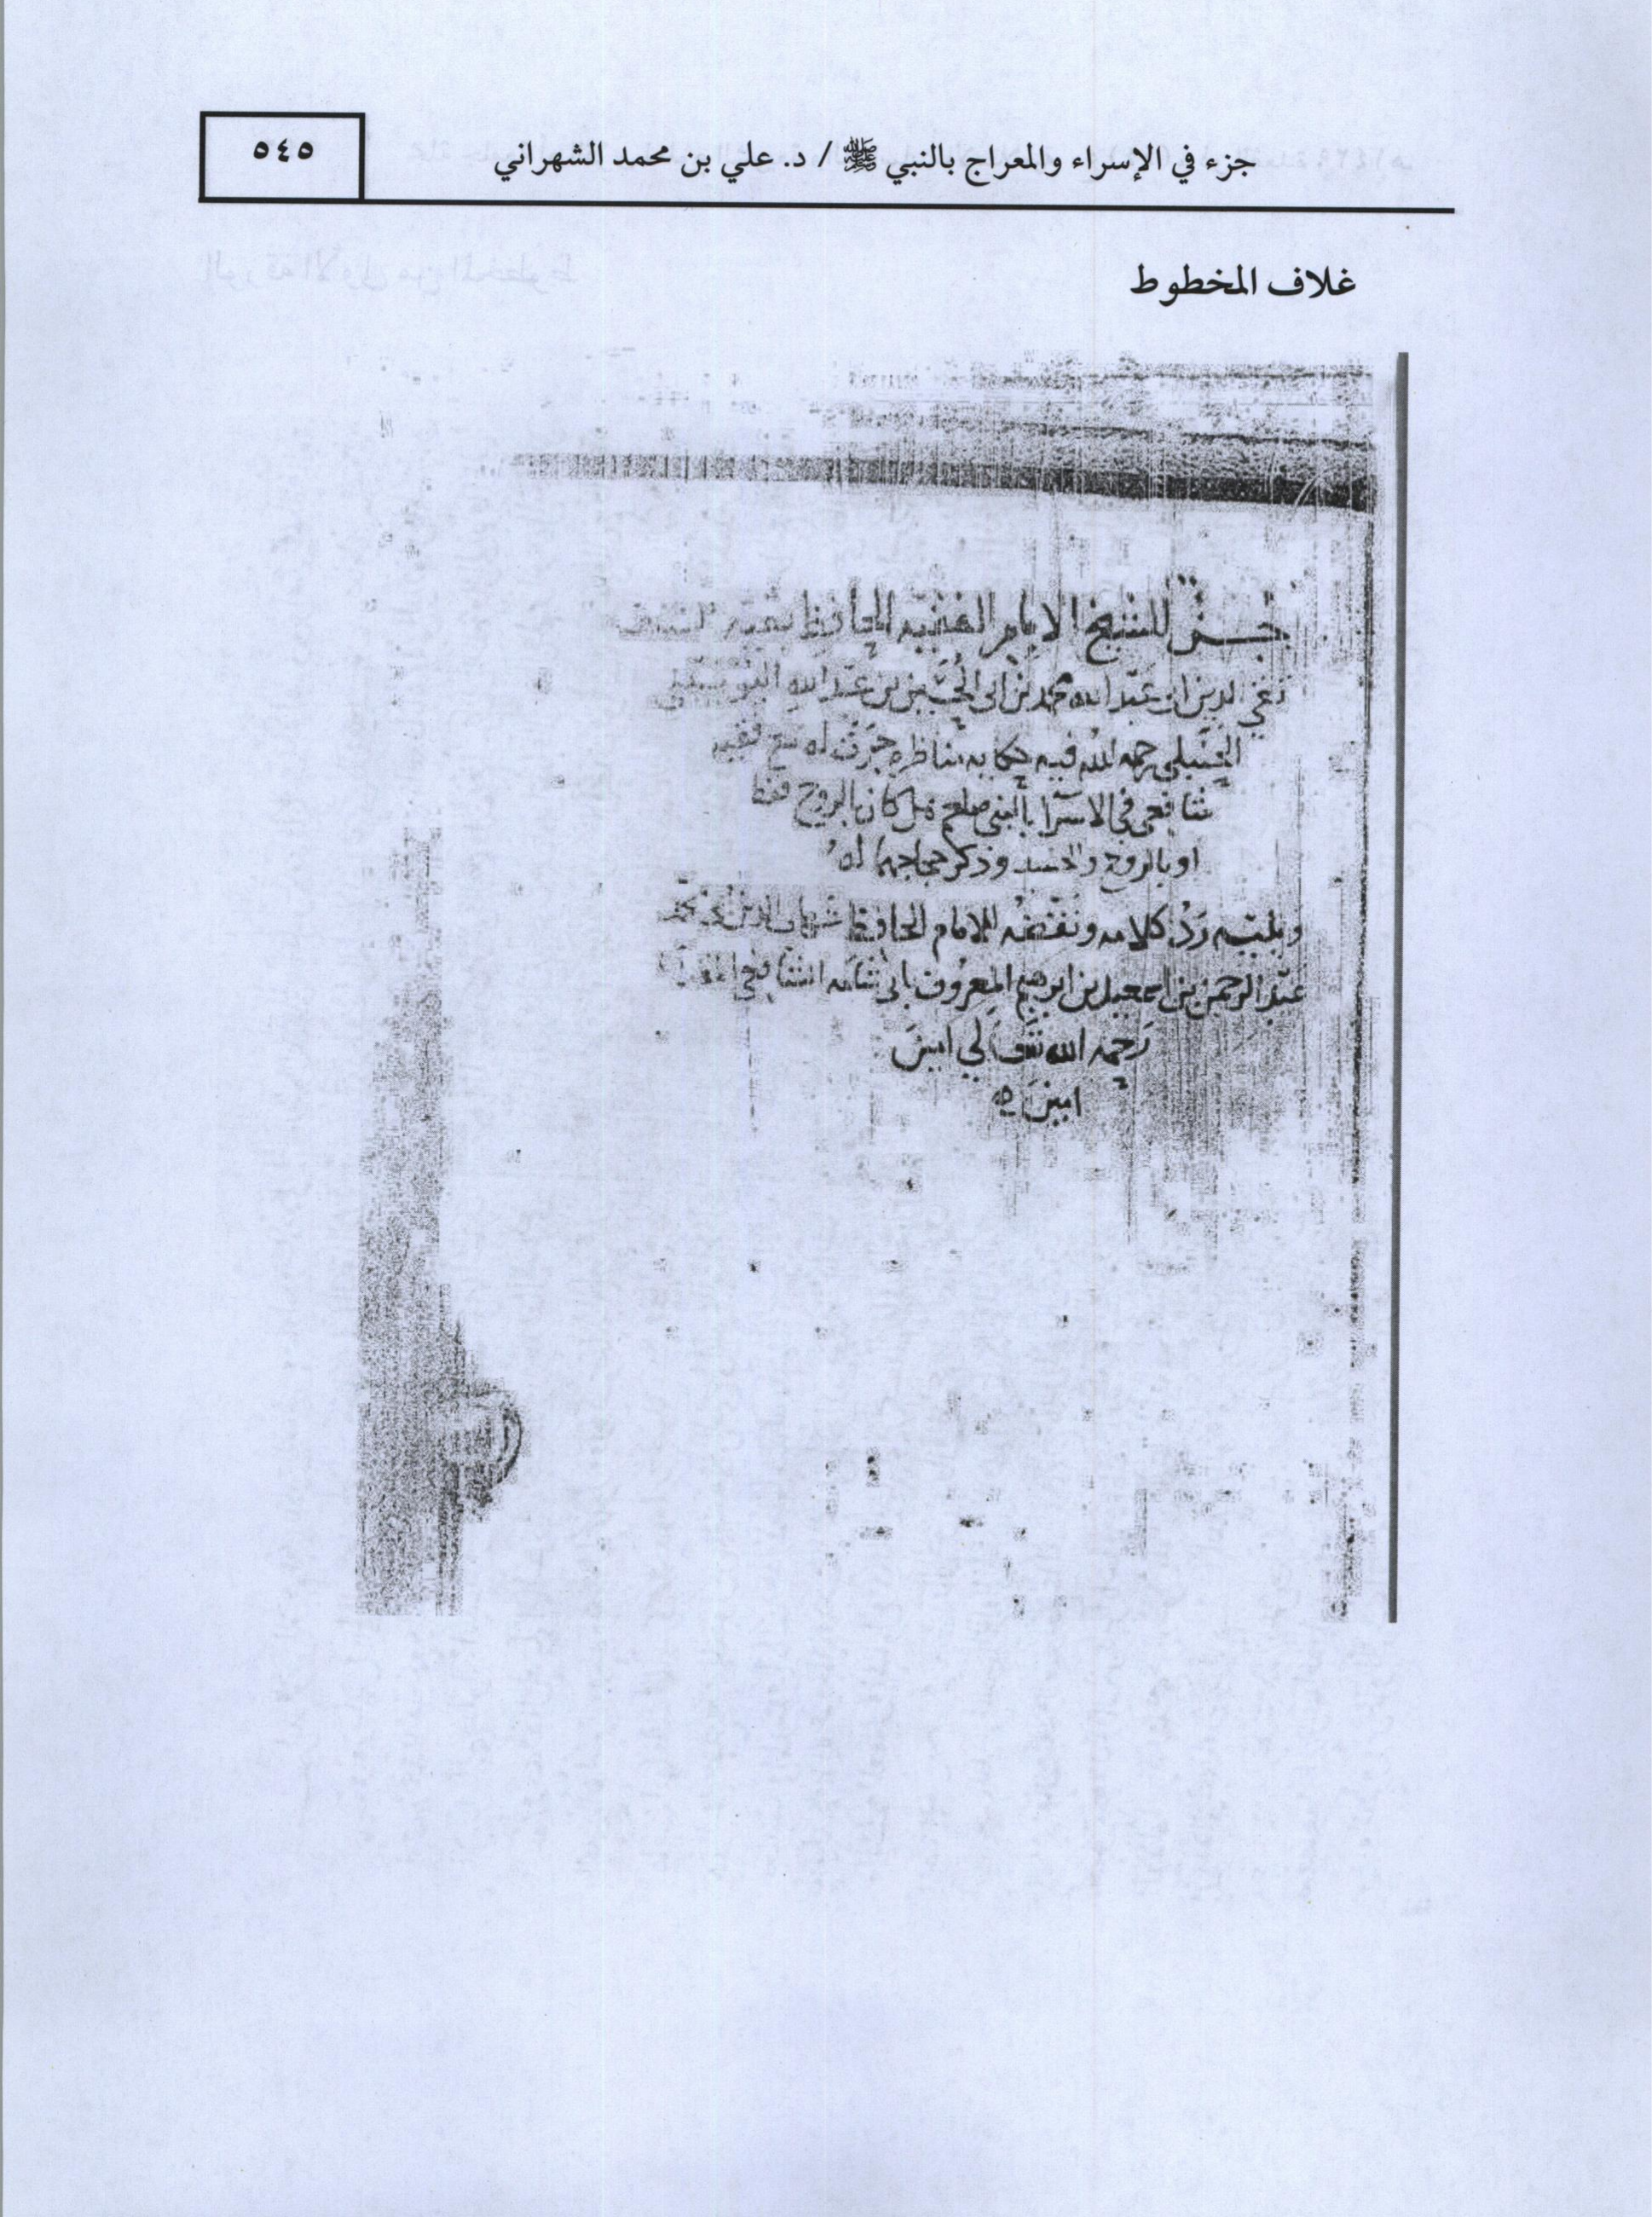 جزء في الإسراء والمعراج بالنبي ﷺ / د. علي بن محمد الشهراني
٥٤٥
غلاف المخطوط
جزء للشيخ الامام الفقيه الحافظ بقية السلف
تقي الدين ابى عبد الله محمد بن ابى الحسين بن عبد الله اليونيني
الحنبلي رحمه الله فيه حكايه مناظره جرت له مع فقيه
شافعى فى الاسرا بالنبي صلعم هل كان بالروح فقط
او بالروح والجسد وذكر حجاجهما له
ويليه رد كلامه ونقضه للامام الحافظ شهاب الدين ابى محمد
عبد الرحمن بن اسمعيل بن ابرهيم المعروف بابى شامه الشافعي
رحمه الله تعالي امين
امين